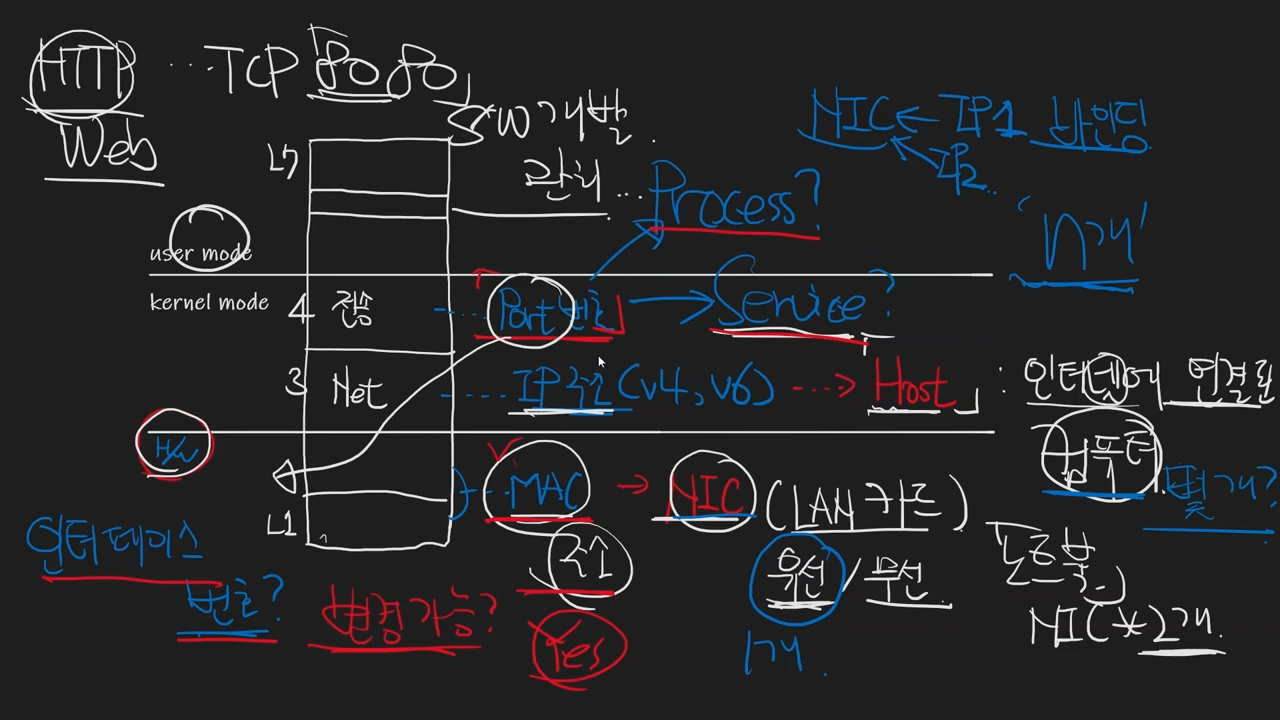 HTTP ... TCP 「80 80」
Web
S/W 개발
관리...
L7
Process?
NIC ← IP1 바인딩
IP2...
'n개'
user mode
kernel mode
4 전송 ..... Port 번호 → Service?
3 Net ..... IP주소 (v4, v6) ...> Host」 : 인터넷에 연결된
컴퓨터
몇개?
H/W
... MAC → NIC (LAN 카드)
주소
유선 / 무선
1개.
노트북
NIC * 2개.
L1
인터페이스
번호?
변경가능?
Yes